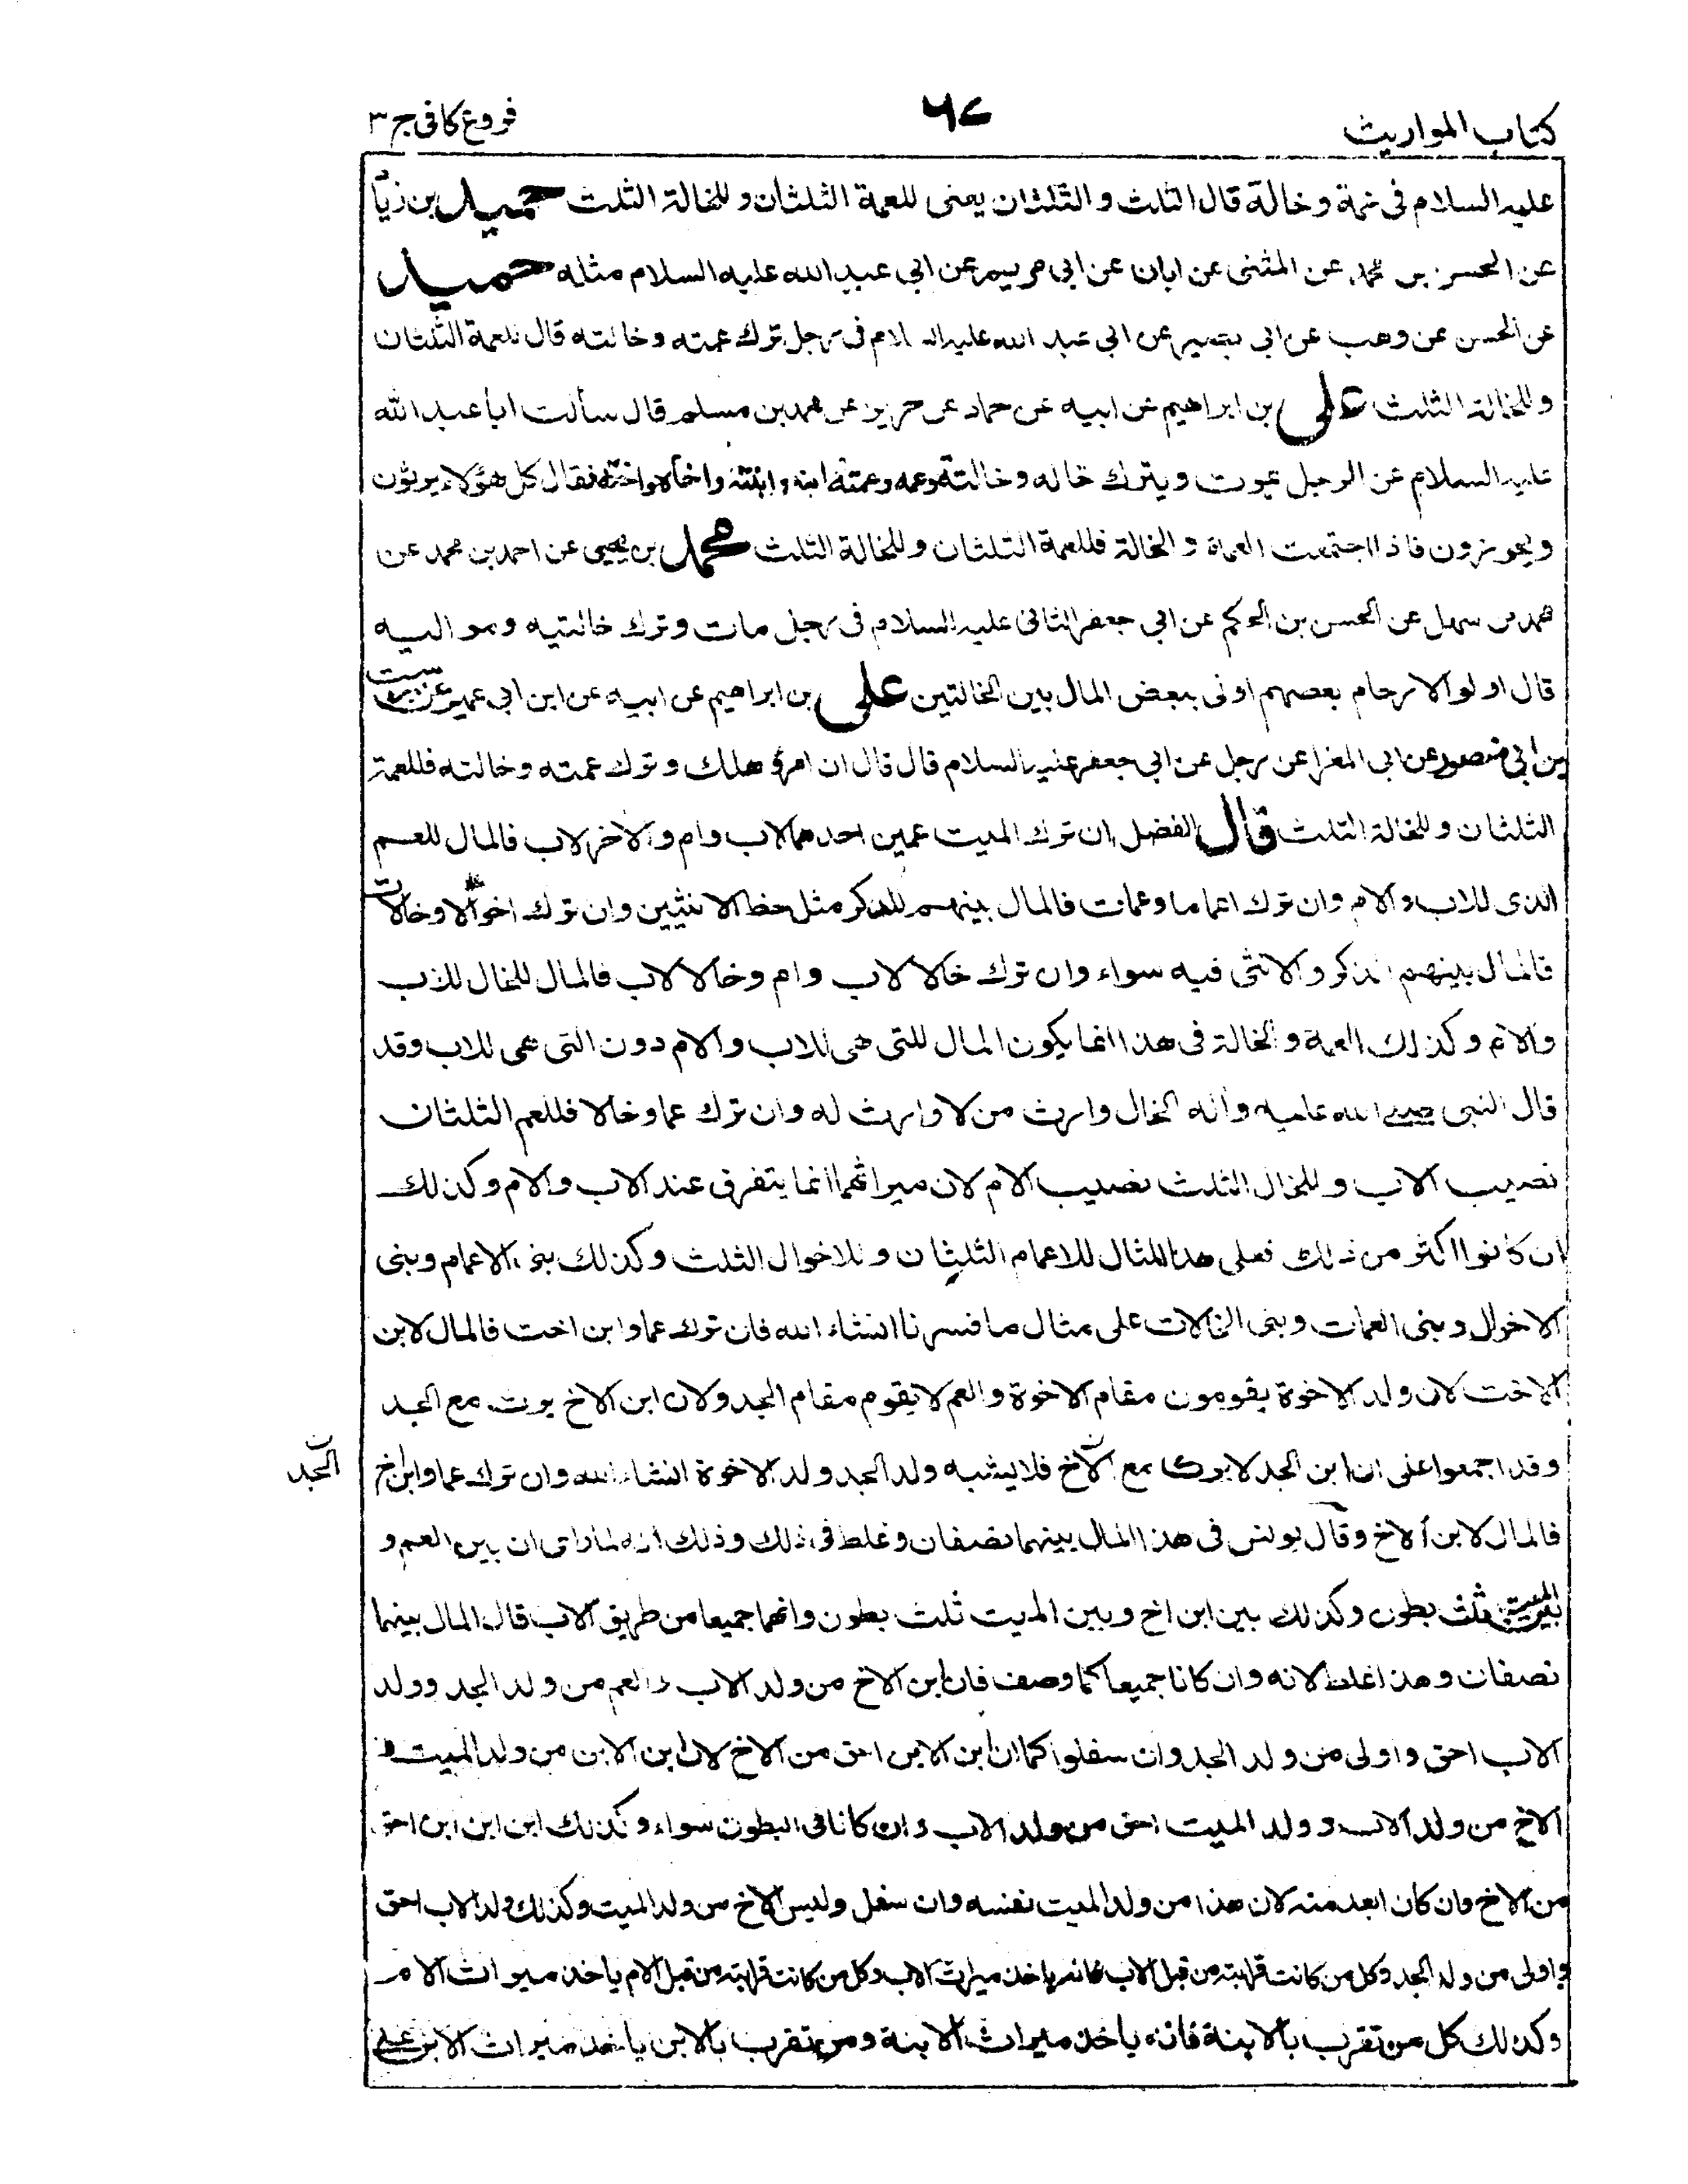 كتاب المواريث ٦٧ فروع كافى ج ٣
عليه السلام فى عمة وخالة قال الثلث والثلثان يعنى للعمة الثلثان وللخالة الثلث حميد بن زيا
عن الحسن بن محمد عن المثنى عن ابان عن ابى مريم عن ابى عبد الله عليه السلام مثله حميد
عن الحسن عن وهب عن ابى بصير عن ابى عبد الله عليه السلام فى رجل ترك عمته وخالته قال للعمة الثلثان
وللخالة الثلث على بن ابراهيم عن ابيه عن حماد عن حريز عن محمد بن مسلم قال سألت ابا عبد الله
عليه السلام عن الرجل يموت ويترك خاله وخالته وعمه وعمته وابنه وابنته واخاه واخته فقال كل هؤلاء يرثون
ويحوزون فاذا اجتمعت العمة والخالة فللعمة الثلثان وللخالة الثلث محمد بن يحيى عن احمد بن محمد عن
محمد بن سهل عن الحسن بن الحكم عن ابى جعفر الثانى عليه السلام فى رجل مات وترك خالتيه ومواليه
قال اولو الارحام بعضهم اولى ببعض المال بين الخالتين على بن ابراهيم عن ابيه عن ابن ابى عمير عن درست
بن ابى منصور عن ابى المغرا عن رجل عن ابى جعفر عليه السلام قال قال ان امرؤ هلك وترك عمته وخالته فللعمة
الثلثان وللخالة الثلث قال الفضل ان ترك الميت عمين احدهما لاب وام والاخر لاب فالمال للعم
الذى للاب والام وان ترك اعماما وعمات فالمال بينهم للذكر مثل حظ الانثيين وان ترك اخوالا وخالات
فالمال بينهم الذكر والانثى فيه سواء وان ترك خالا لاب وام وخالا لاب فالمال للخال للاب
والام وكذلك العمة والخالة فى هذا انما يكون المال للتى هى للاب والام دون التى هى للاب وقد
قال النبى صلى الله عليه وآله الخال وارث من لا وارث له وان ترك عما وخالا فللعم الثلثان
نصيب الاب وللخال الثلث نصيب الام لان ميراثهما انما يتفرق عند الاب والام وكذلك
ان كانوا اكثر من ذلك فعلى هذا المثال للاعمام الثلثان وللاخوال الثلث وكذلك بنى الاعمام وبنى
الاخوال وبنى العمات وبنى الخالات على مثال ما فسرنا انشاء الله فان ترك عما وابن اخت فالمال لابن
الاخت لان ولد الاخوة يقومون مقام الاخوة والعم لا يقوم مقام الجد ولان ابن الاخ يرث مع الجد
وقد اجمعوا على ان ابن الجد لا يرث مع الاخ فلا يشبه ولد الجد ولد الاخوة انشاء الله وان ترك عما وابن اخ
الجد
فالمال لابن الاخ وقال يونس فى هذا المال بينهما نصفان وغلط فى ذلك وذلك انه لما راى ان بين العم و
بين الميت ثلث بطون وكذلك بين ابن اخ وبين الميت ثلث بطون وانهما جميعا من طريق الاب قال المال بينهما
نصفان وهذا غلط لانه وان كانا جميعا كما وصف فان ابن الاخ من ولد الاب والعم من ولد الجد وولد
الاب احق واولى من ولد الجد وان سفلوا كما ان ابن الابن احق من الاخ لان ابن الابن من ولد الميت و
الاخ من ولد الاب وولد الميت احق من ولد الاب وان كانا فى البطون سواء وكذلك ابن ابن ابن احق
من الاخ وان كان ابعد منه لان هذا من ولد الميت نفسه وان سفل وليس الاخ من ولد الميت وكذلك ولد الاب احق
واولى من ولد الجد وكل من كانت قرابته من قبل الاب فانه ياخذ ميراث الاب وكل من كانت قرابته من قبل الام ياخذ ميراث الام
وكذلك كل من تقرب بالابنة فانه ياخذ ميراث الابنة ومن تقرب بالابن ياخذ ميراث الابن على